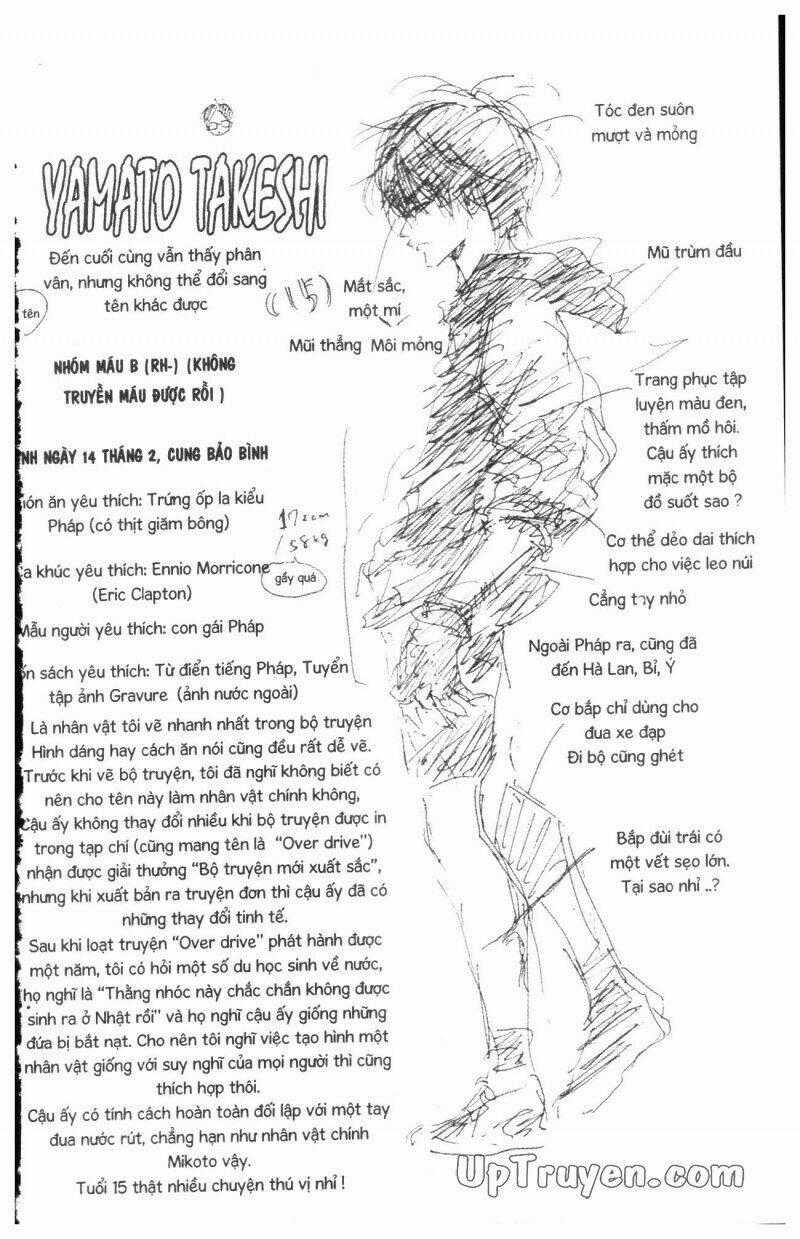 YAMATO TAKESHI
Đến cuối cùng vẫn thấy phân
vân, nhưng không thể đổi sang
tên khác được
tên
(15)
NHÓM MÁU B (RH-) (KHÔNG
TRUYỀN MÁU ĐƯỢC RỒI )
NH NGÀY 14 THÁNG 2, CUNG BẢO BÌNH
ón ăn yêu thích: Trứng ốp la kiểu
Pháp (có thịt giăm bông)
172cm
/58kg
gầy quá
a khúc yêu thích: Ennio Morricone
(Eric Clapton)
Mẫu người yêu thích: con gái Pháp
ốn sách yêu thích: Từ điển tiếng Pháp, Tuyển
tập ảnh Gravure (ảnh nước ngoài)
Là nhân vật tôi vẽ nhanh nhất trong bộ truyện
Hình dáng hay cách ăn nói cũng đều rất dễ vẽ.
Trước khi vẽ bộ truyện, tôi đã nghĩ không biết có
nên cho tên này làm nhân vật chính không,
Cậu ấy không thay đổi nhiều khi bộ truyện được in
trong tạp chí (cũng mang tên là "Over drive")
nhận được giải thưởng "Bộ truyện mới xuất sắc",
nhưng khi xuất bản ra truyện đơn thì cậu ấy đã có
những thay đổi tinh tế.
Sau khi loạt truyện "Over drive" phát hành được
một năm, tôi có hỏi một số du học sinh về nước,
họ nghĩ là "Thằng nhóc này chắc chắn không được
sinh ra ở Nhật rồi" và họ nghĩ cậu ấy giống những
đứa bị bắt nạt. Cho nên tôi nghĩ việc tạo hình một
nhân vật giống với suy nghĩ của mọi người thì cũng
thích hợp thôi.
Cậu ấy có tính cách hoàn toàn đối lập với một tay
đua nước rút, chẳng hạn như nhân vật chính
Mikoto vậy.
Tuổi 15 thật nhiều chuyện thú vị nhỉ !
Tóc đen suôn
mượt và mỏng
Mũ trùm đầu
Mắt sắc,
một mí
Mũi thẳng Môi mỏng
Trang phục tập
luyện màu đen,
thấm mồ hôi.
Cậu ấy thích
mặc một bộ
đồ suốt sao ?
Cơ thể dẻo dai thích
hợp cho việc leo núi
Cẳng tay nhỏ
Ngoài Pháp ra, cũng đã
đến Hà Lan, Bỉ, Ý
Cơ bắp chỉ dùng cho
đua xe đạp
Đi bộ cũng ghét
Bắp đùi trái có
một vết sẹo lớn.
Tại sao nhỉ ..?
UpTruyen.com